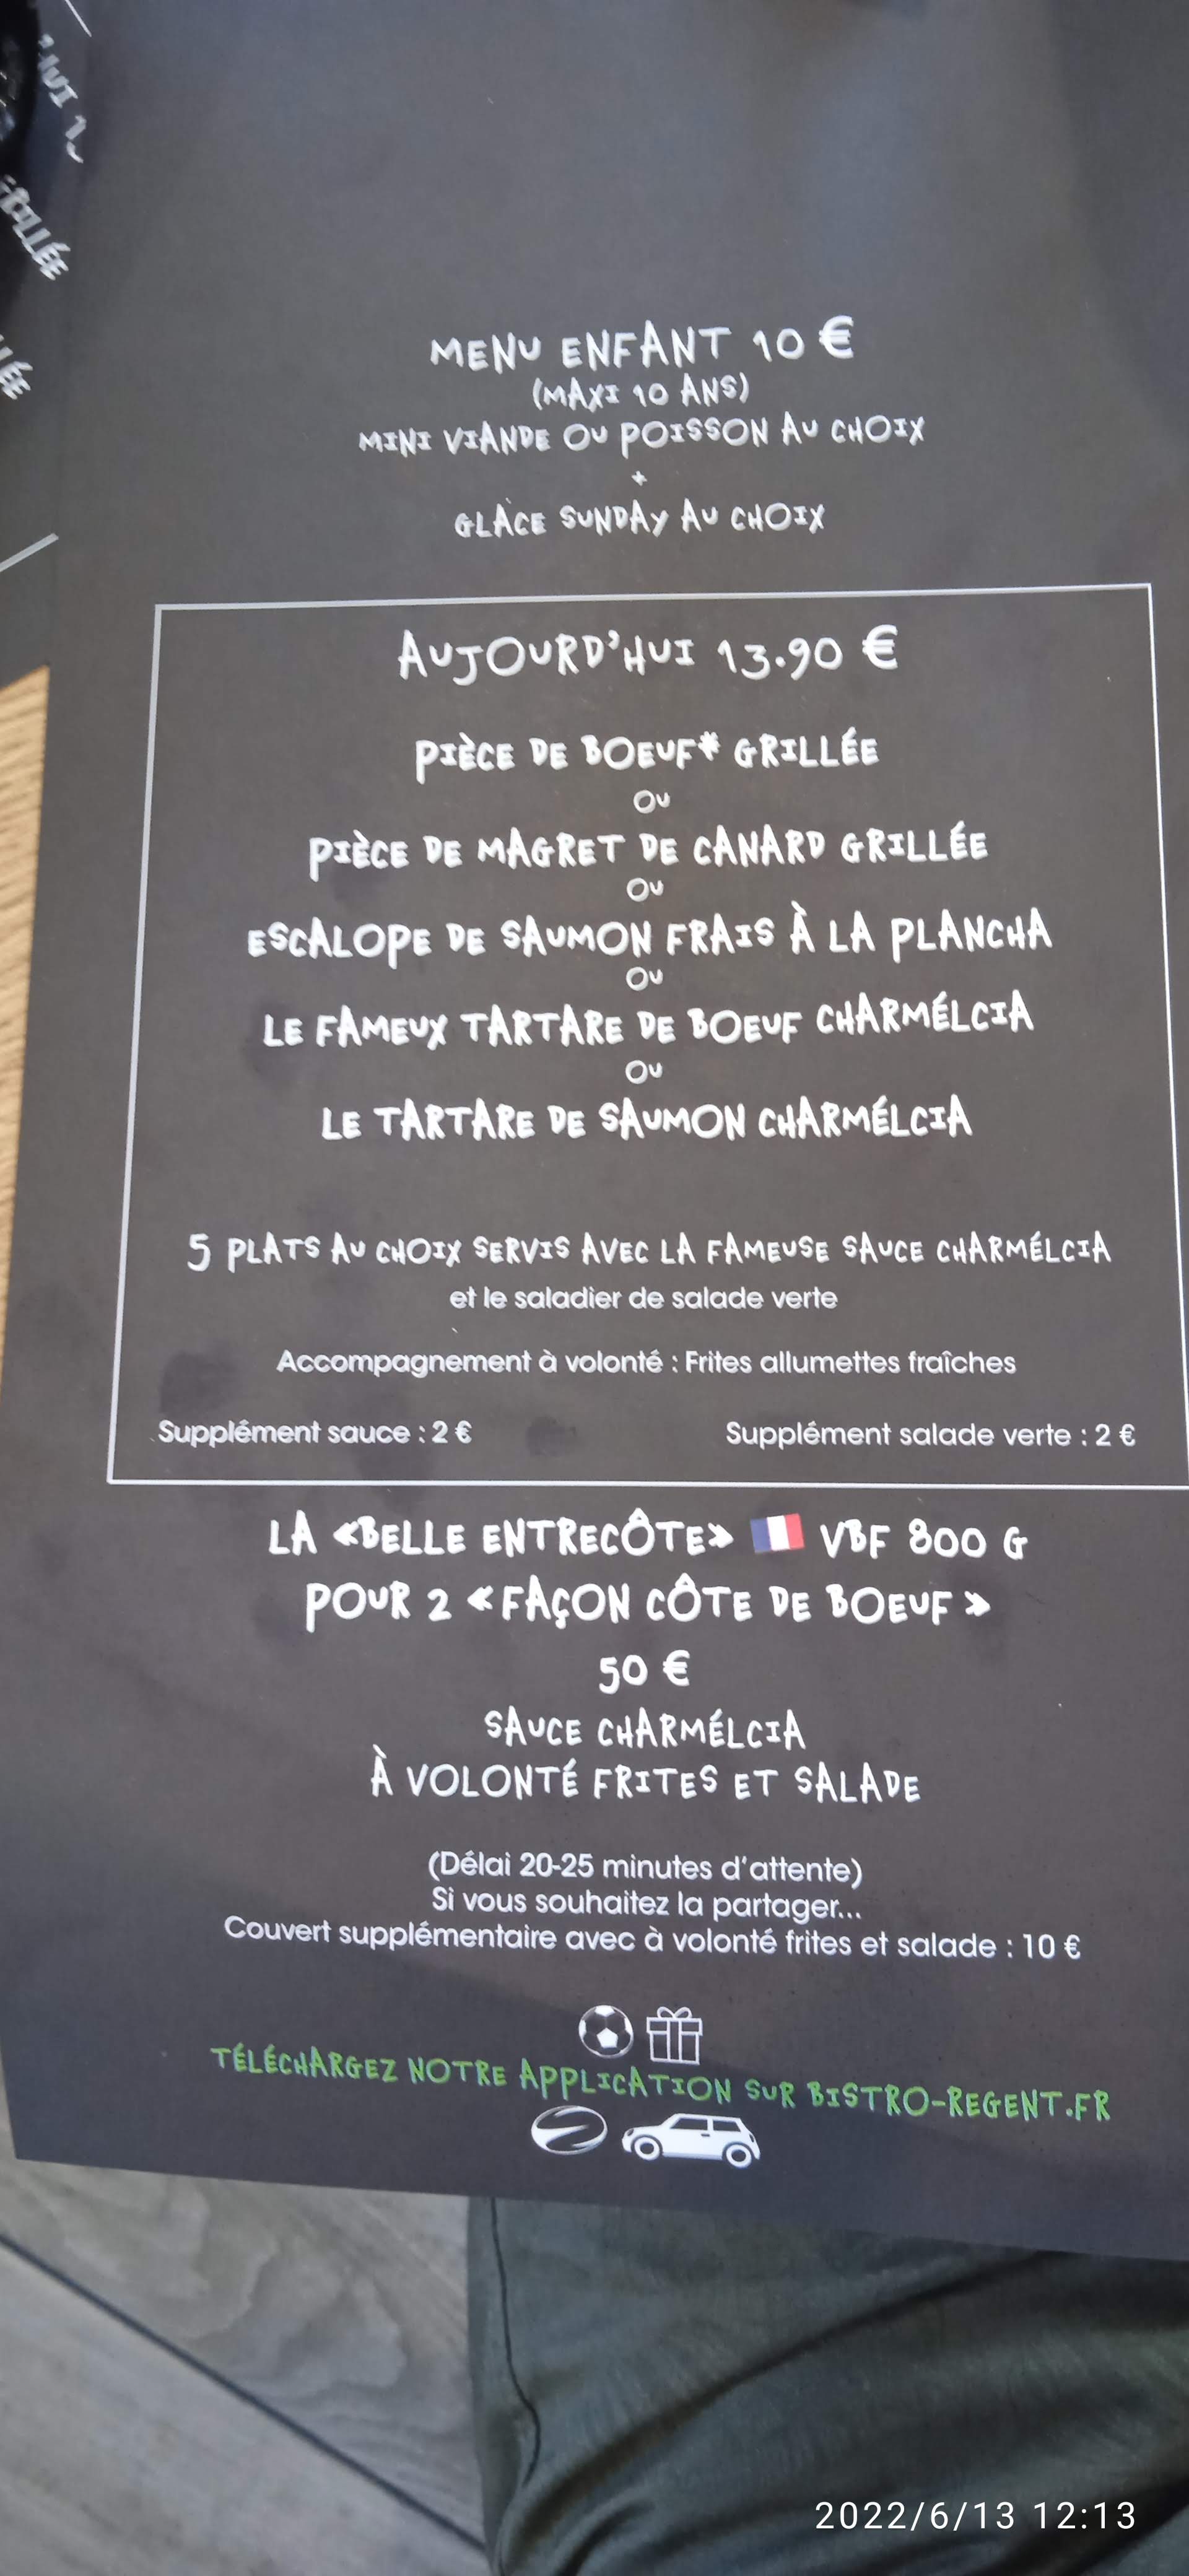 MENU ENFANT 10 €
(MAXI 10 ANS)
MINI VIANDE OU POISSON AU CHOIX
+
GLACE SUNDAY AU CHOIX
AUJOURD'HUI 13.90 €
PIÈCE DE BOEUF* GRILLÉE
OU
PIÈCE DE MAGRET DE CANARD GRILLÉE
OU
ESCALOPE DE SAUMON FRAIS À LA PLANCHA
OU
LE FAMEUX TARTARE DE BOEUF CHARMÉLCIA
OU
LE TARTARE DE SAUMON CHARMÉLCIA
5 PLATS AU CHOIX SERVIS AVEC LA FAMEUSE SAUCE CHARMÉLCIA
et le saladier de salade verte
Accompagnement à volonté : Frites allumettes fraîches
Supplément sauce : 2 €
Supplément salade verte : 2 €
LA «BELLE ENTRECÔTE» 🇫🇷 VBF 800 G
POUR 2 «FAÇON CÔTE DE BOEUF »
50 €
SAUCE CHARMÉLCIA
À VOLONTÉ FRITES ET SALADE
(Délai 20-25 minutes d'attente)
Si vous souhaitez la partager...
Couvert supplémentaire avec à volonté frites et salade : 10 €
TÉLÉCHARGEZ NOTRE APPLICATION SUR BISTRO-REGENT.FR
2022/6/13 12:13